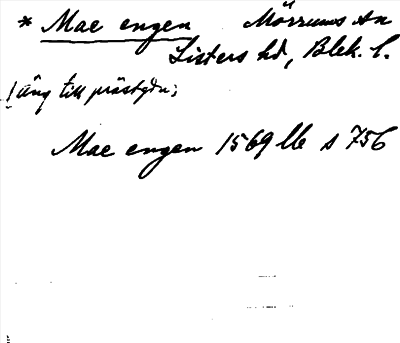 * Mae engen Mörrums sn
Listers hd, Blek. l.
! äng till prästgdn;
Mae engen 1569 llb s 756